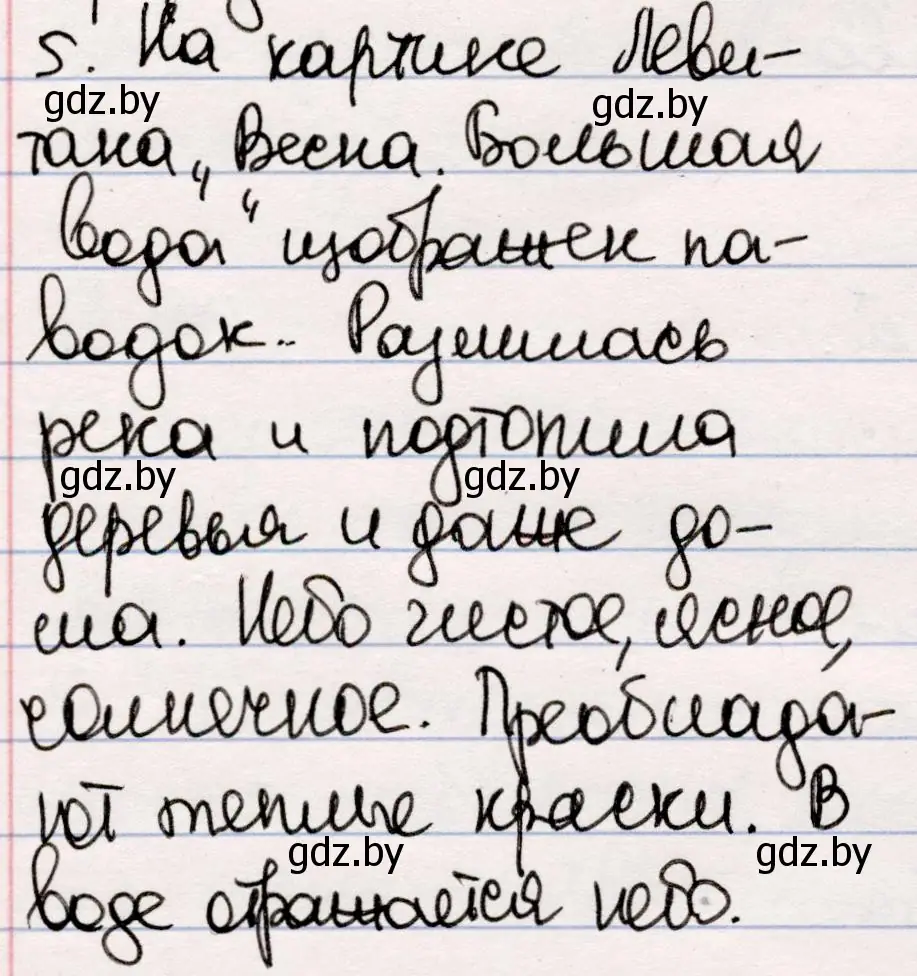 5. На картине Леви-
gdz.by gdz.by
тана „Весна. Большая
вода“ изображен па-
водок. Разлилась
река и подтопила
gdz.by gdz.by
деревья и даже до-
ма. Небо чистое, ясное,
солнечное. Преоблада-
ют теплые краски. В
gdz.by gdz.by
воде отражается небо.